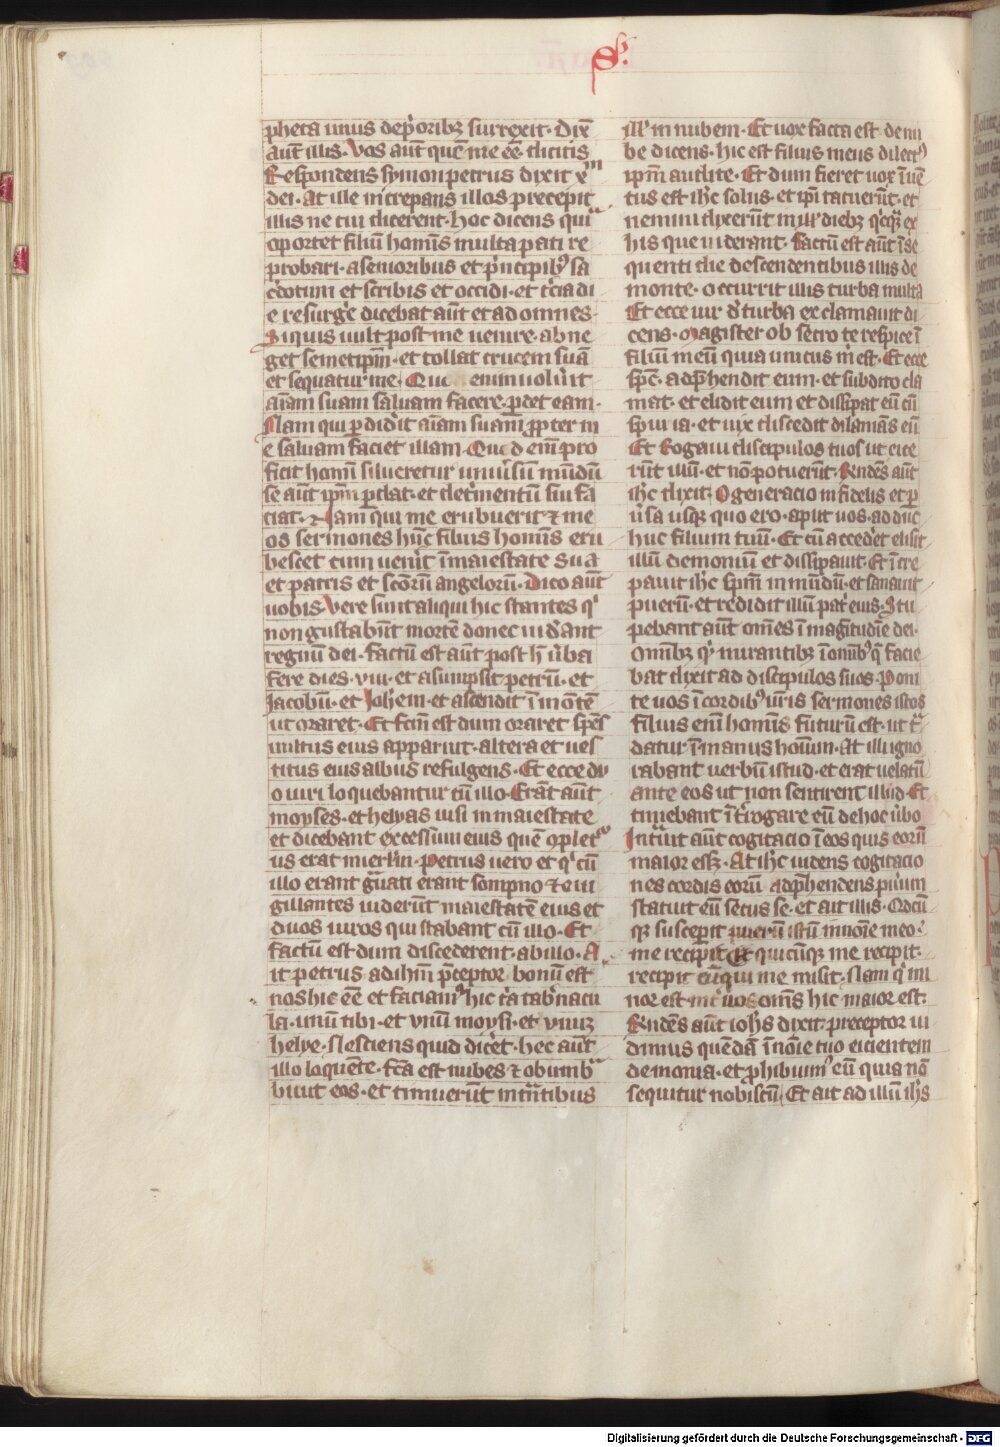 S̅.
pheta unus dep̓oribꝫ surrexit · Dix̄
aūt illis · Vos aūt quē me eē dicitis
Respondens symon petrus dixit xp̄m
dei · At ille increpans illos precepit
illis ne cui dicerent · hoc dicens quia
oportet filiū homīs multa pati re
probari · a senioribus et p̓ncipibꝰ sa
c̓dotum et scribis et occidi · et t̓cia di
e resurg̓e dicebat aūt et ad omnes ·
Siquis uult post me uenire · abne
get semetip̄m · et tollat crucem suā
et sequatur me · Qui enim uolu̓it
aīam suam saluam facere · ꝑdet eam ·
Nam qui ꝑdid̓it aīam suam ꝓpter m
e saluam faciet illam · Quid em̄ pro
ficit homī si lucretur uniu̓sū mūdū
se aūt ip̄m ꝑdat · et det̓mentū sui fa
ciat · Nam qui me erubuerit ⁊ me
os sermones hūc filius homīs eru
bescet cum uen̓it ī maiestate sua
et patris et sc̄orū angelorū · Dico aūt
uobis Vere sunt aliqui hic stantes qͥ
non gustabūt mortē donec uid̓ant
regnū dei · factū est aūt post h̄ u̓ba
fere dies · viii · et asumpsit petrū · et
Jacobū · et Joh̄em · et ascendit ī mōtē
ut oraret · Et fc̄m est dum oraret spēs
uultus eius apparuit · altera et ues
titus eius albus refulgens · Et ecce du
o uiri loquebantur cū illo · Erāt aūt
moyses · et helyas uisi in maiestate
et dicebant excessum eius quē 9plet̓
us erat in ierl̄m · Petrus uero et qͥ cū
illo erant grauati erant sompno ⁊ eui
gillantes uiderūt maiestatē eius et
duos uiros qui stabant cū illo · Et
factū est dum discederent · ab illo · A
it petrus ad ih̄m p̄ceptor · bonū est
nos hic eē et faciamꝰ hic t̓a tab̓nacu
la · unū tibi · et vnū moysi · et vnuꝫ
helye · Nesciens quid dic̓et · hec aūt
illo loquēte · fc̄a est nubes ⁊ obumbra
buut eos · et timuerūt intrātibus
ill̓ in nubem · Et uox facta est · de nu
be dicens · hic est filius meus dilectꝰ
ip̄m audite · Et dum fieret uox īuē
tus est ih̄c solus · et ip̄i tacuerūt · et
nemini dixerūt in ill̓ diebꝫ qͥcqꝫ ex
his que uiderant · Factū est aūt ī se
quenti die descendentibus illis de
monte · occurrit illis turba multa
Et ecce uir d̓ turba exclamauit di
cens · Magister obsecro te respice ī
filiū meū quia unicus m̓ est · Et ecce
sp̄c · adp̄hendit eum · et subdito cla
mat · et elidit eum et dissipat eū cū
spuma · et uix discedit dilaniās eū
Et Rogaui discipulos tuos ut eice
rūt illū · et nō potuerūt · Rndēs aūt
ih̄c dixit · O generacio infidelis et ꝑ
u̓sa usqꝫ quo ero · aput uos · adduc
huc filium tuū · Et cū acced̓et elisit
illū demoniū et dissipauit · Et īcre
pauit ih̄c sp̄m inmūdū · et sanauit
puerū · et redidit illū patͥ eius · Stu
pebant aūt om̄es ī magͥtudīe dei ·
Omībꝫ qꝫ mirantibꝫ ī omībꝰ q̄ facie
bat dixit ad discipulos suos · Poni
te uos ī cordibꝰ ur̄is sermones istos
filius enī homīs futurū est · ut tra
datur ī manus homīum · At illi igno
rabant uerbū istud · et erat uelatū
ante eos ut non sentirent illud · Et
timebant īt̓rogare eū de hoc u̓bo
Intrauit aūt cogitacio ī eos quis eorū
maior eēꝫ · At ih̄c uidens cogitacio
nes cordis eorū adp̄hendens puerum
statuit eū secus se · et ait illis · Qdcū
qꝫ susceperit puerū istū in noīe meo ·
me recipit · Et quicūqꝫ me recipit ·
recipit eū qui me misit · Nam qͥ mi
nor est int̓ uos om̄s hic maior est ·
Rndēs aūt ioh̄s dixit preceptor ui
dimus quēdā ī noīe tuo eicientem
demonia · et ꝓhibuimꝰ eū quia nō
sequitur nobiscū · Et ait ad illū ih̄s
Digitalisierung gefördert durch die Deutsche Forschungsgemeinschaft - DFG